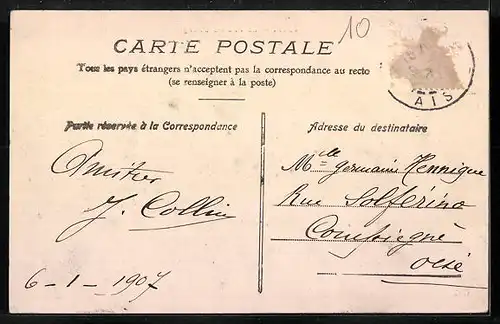 10
CARTE POSTALE
Tous les pays étrangers n'acceptent pas la correspondance au recto
(se renseigner à la poste)
Partie réservée à la Correspondance
Adresse du destinataire
Amitiés
J. Collin
6-1-1907
Mlle Germaine Hennique
Rue Solférino
Compiègne
Oise
AIS